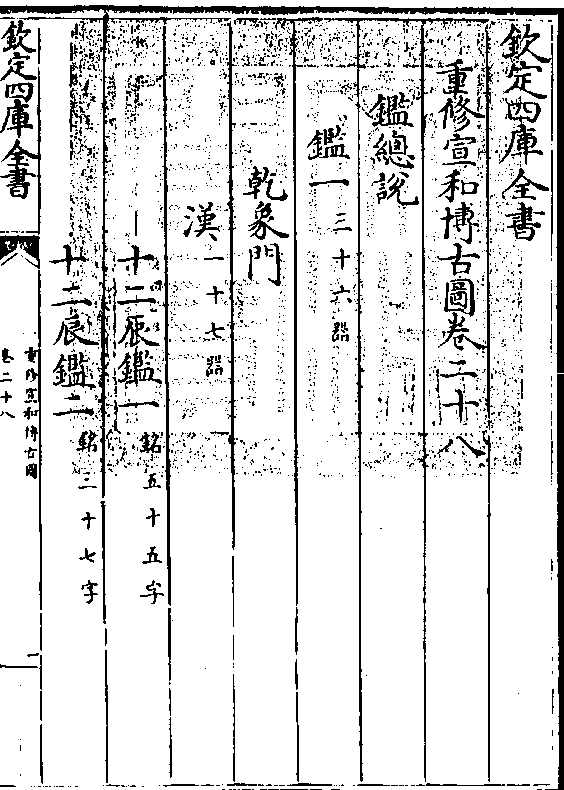 欽定四庫全書
重修宣和博古圖卷二十八
鑑總說
鑑一三十六器
乾象門
漢一十七器
十二辰鑑一銘五十五字
十二辰鑑二銘三十七字
欽定四庫全書
重修宣和博古圖
卷二十八
一